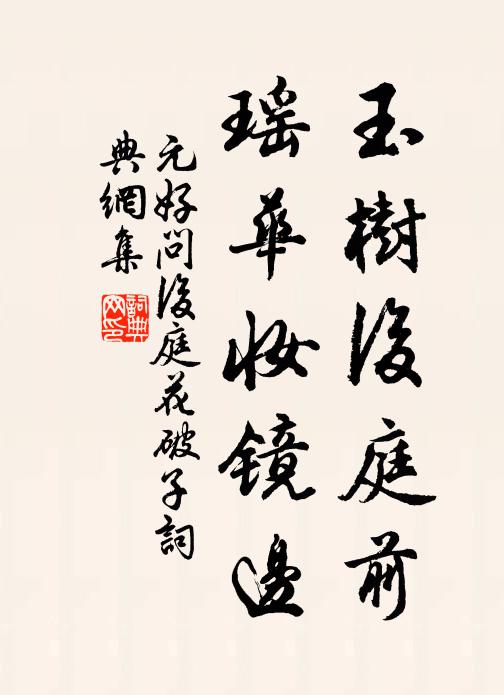 玉樹後庭前
瑶華妝鏡邊
元好問後庭花破子詞
典網集
詞典网印